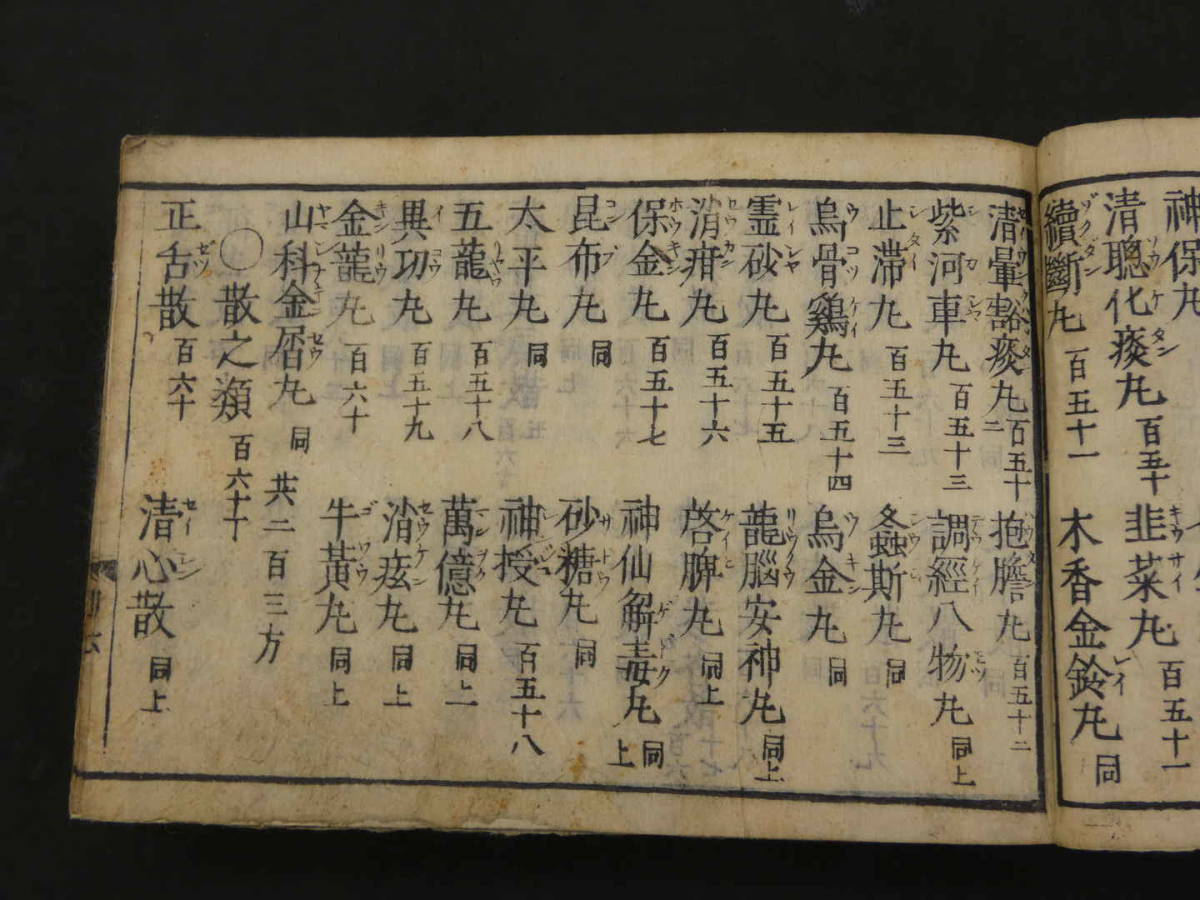 神保丸
清聰化痰丸 百五十 韭菜丸 百五十一
續斷丸 百五十一 木香金鈴丸 同
清暈豁痰丸 百五十二 抱膽丸 百五十二
紫河車丸 百五十三 調經八物丸 同上
止滞丸 百五十三 螽斯丸 同
烏骨鷄丸 百五十四 烏金丸 同
霊砂丸 百五十五 龍腦安神丸 同上
消疳丸 百五十六 啓脾丸 同上
保金丸 百五十七 神仙解毒丸 同上
昆布丸 同 砂糖丸 同
太平丸 同 神授丸 百五十八
五龍丸 百五十八 萬億丸 同上
異功丸 百五十九 消痃丸 同上
金龍丸 百六十 牛黃丸 同上
山科金屑丸 同 共二百三方
〇散之類 百六十
正舌散 百六十 清心散 同上